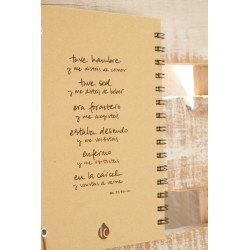 tuve hambre
y me disteis de comer
tuve sed
y me disteis de beber
era forastero
y me acogisteis
estaba desnudo
y me vestisteis
enfermo
y me visitasteis
en la cárcel
y vinisteis a verme